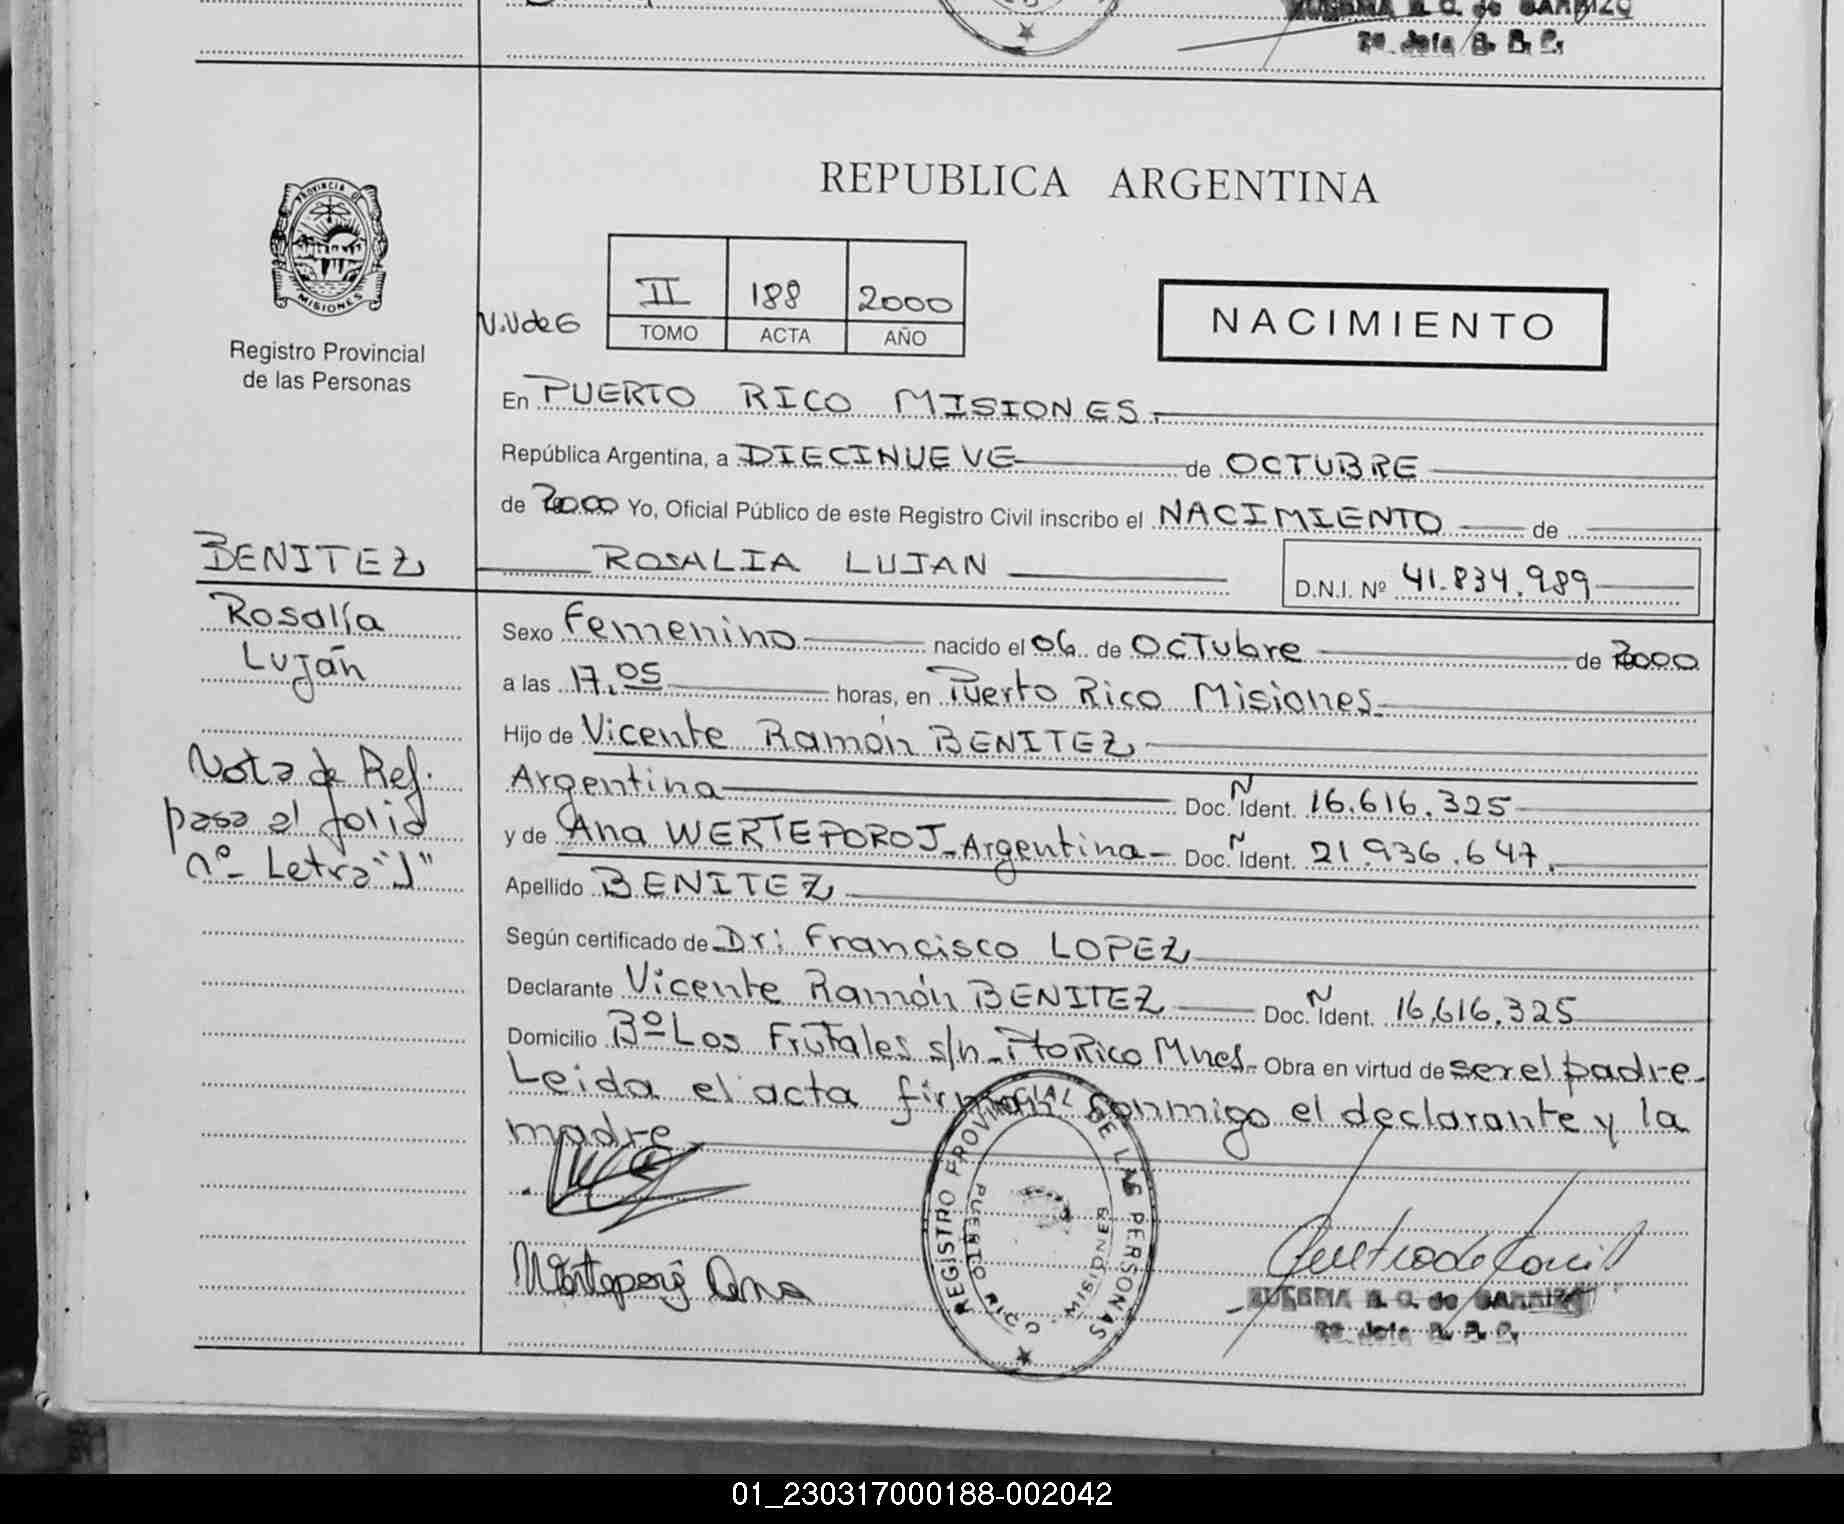 EUGENIA B. G. de GARRIZO
2e. Jefa R. P. P.
REPUBLICA ARGENTINA
PROVINCIA DE
MISIONES
Registro Provincial
de las Personas
II 188 2000
TOMO ACTA AÑO
NACIMIENTO
En PUERTO RICO MISIONES.
República Argentina, a DIECINUEVE de OCTUBRE
de 2000 Yo, Oficial Público de este Registro Civil inscribo el NACIMIENTO de
BENITEZ
ROSALIA LUJAN
D.N.I. Nº 41.834.989
Rosalía
Luján
Nota de Ref.
pasa al folio
nº- Letra "J"
Sexo Femenino nacido el 06 de OCTubre de 2000
a las 17.05 horas, en Puerto Rico Misiones.
Hijo de Vicente Ramón BENITEZ
Argentina Doc. Ñ Ident. 16.616.325
y de Ana WERTEPOROJ - Argentina - Doc. Ñ Ident. 21.936.647.
Apellido BENITEZ
Según certificado de Dr: Francisco LOPEZ
Declarante Vicente Ramón BENITEZ Doc. Ñ Ident. 16.616.325
Domicilio Bº Los Frutales s/n - Pto Rico Mnes - Obra en virtud de ser el padre.
Leida el acta firman conmigo el declarante y la
madre
REGISTRO PROVINCIAL DE LAS PERSONAS
PUERTO RICO
MISIONES
Ana
EUGENIA B. G. de GARRIZO
2e. Jefa R. P. P.
01_230317000188-002042